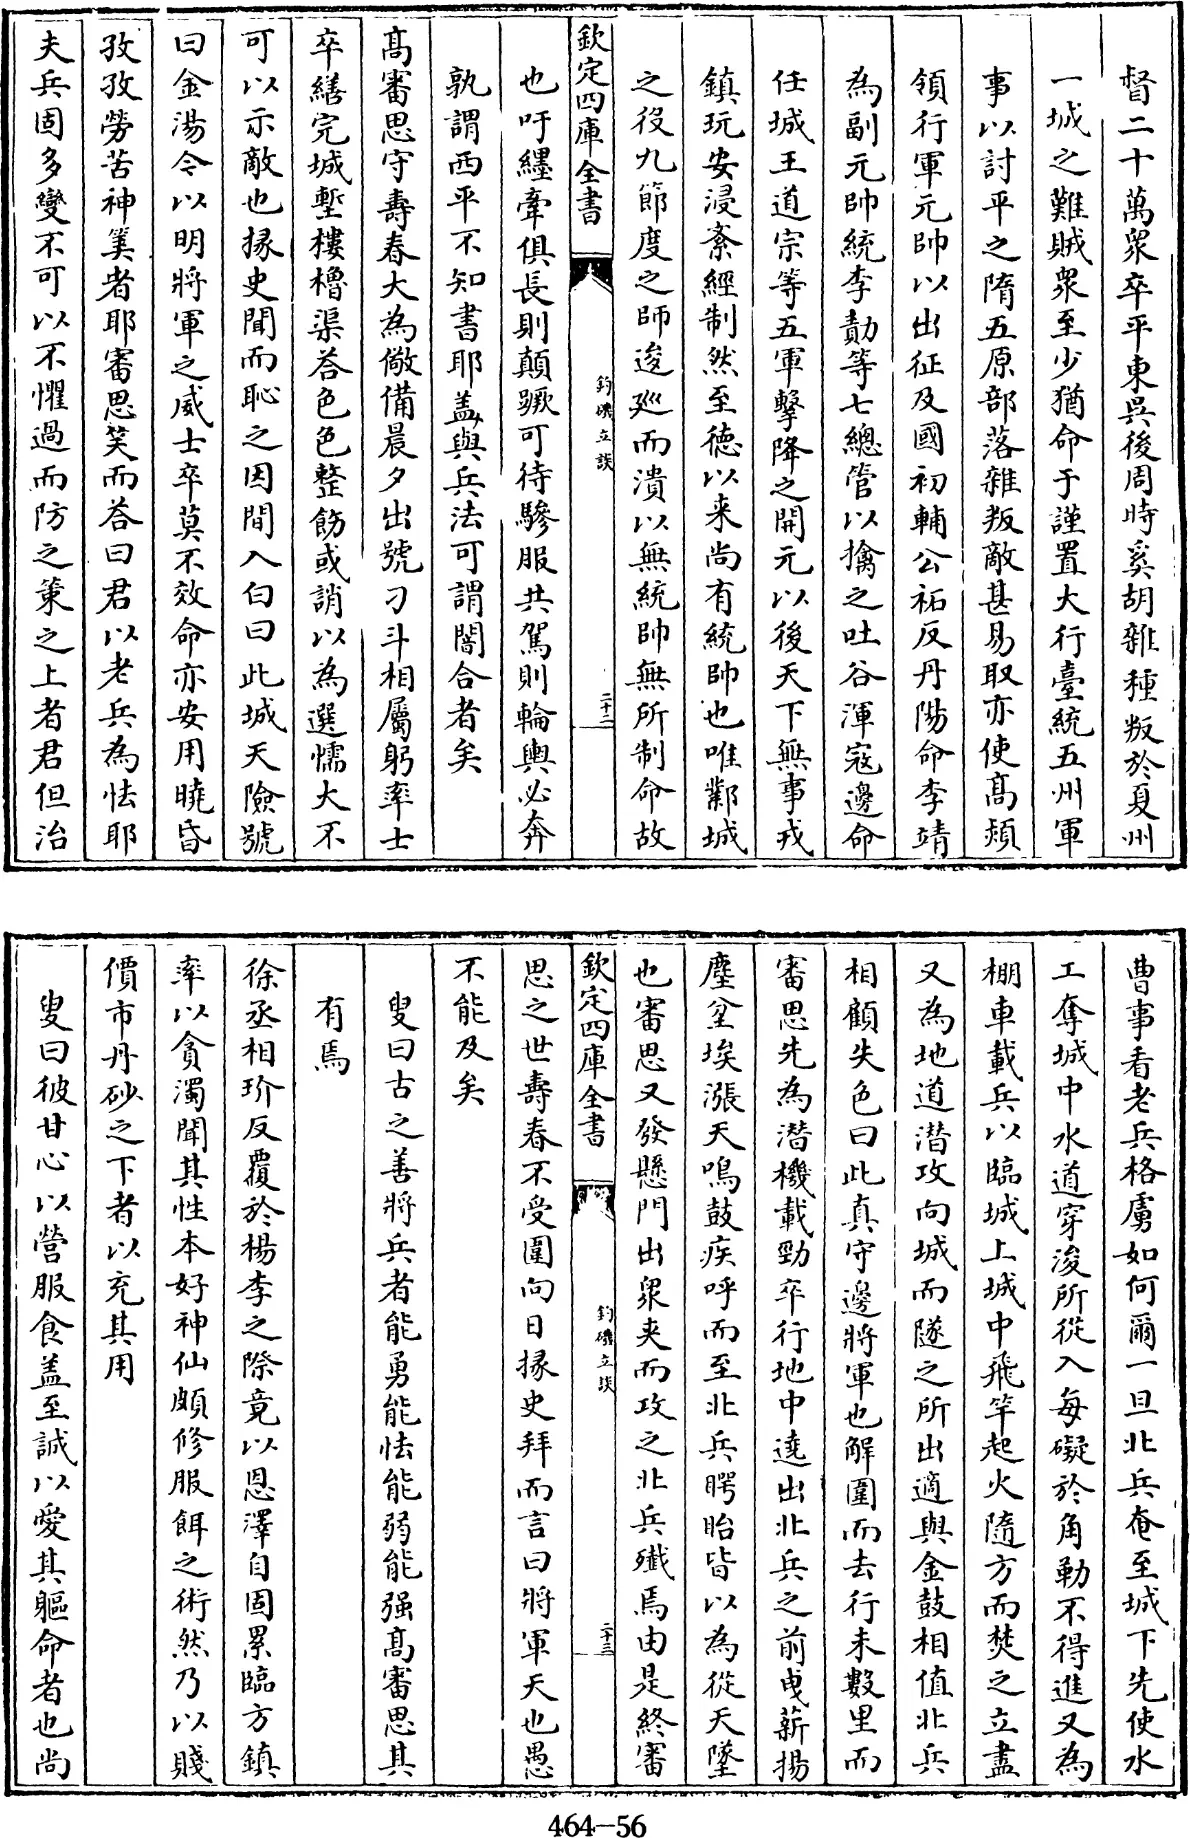 督二十萬衆卒平東吳後周時奚胡雜種叛於夏州
一城之難賊衆至少猶命于謹置大行臺統五州軍
事以討平之隋五原部落雜叛敵甚易取亦使髙熲
領行軍元帥以出征及國初輔公祏反丹陽命李靖
為副元帥統李勣等七總管以擒之吐谷渾寇邊命
任城王道宗等五軍擊降之開元以後天下無事戎
鎮玩安浸紊經制然至德以來尚有統帥也唯鄴城
之役九節度之師逡廵而潰以無統帥無所制命故
欽定四庫全書
釣磯立談
二十二
也吁纆牽俱長則顛蹶可待驂服共駕則輪輿必奔
孰謂西平不知書耶蓋與兵法可謂闇合者矣
髙審思守壽春大為儆備晨夕出號刁斗相屬躬率士
卒繕完城塹樓櫓渠荅色色整飭或誚以為選懦大不
可以示敵也掾史聞而恥之因間入白曰此城天險號
曰金湯今以明將軍之威士卒莫不效命亦安用曉昏
孜孜勞苦神筭者耶審思笑而荅曰君以老兵為怯耶
夫兵固多變不可以不懼過而防之策之上者君但治
曹事看老兵格虜如何爾一旦北兵奄至城下先使水
工奪城中水道穿浚所從入每礙於角勒不得進又為
棚車載兵以臨城上城中飛竿起火隨方而焚之立盡
又為地道潛攻向城而隧之所出適與金鼓相值北兵
相顧失色曰此真守邊將軍也解圍而去行未數里而
審思先為潛機載勁卒行地中遶出北兵之前曳薪揚
塵坌埃漲天鳴鼓疾呼而至北兵腭眙皆以為從天墜
也審思又發懸門出衆夾而攻之北兵殱焉由是終審
欽定四庫全書
釣磯立談
二十三
思之世壽春不受圍向日掾史拜而言曰將軍天也愚
不能及矣
叟曰古之善將兵者能勇能怯能弱能强髙審思其
有焉
徐丞相玠反覆於楊李之際竟以恩澤自固累臨方鎮
率以貪濁聞其性本好神仙頗修服餌之術然乃以賤
價市丹砂之下者以充其用
叟曰彼甘心以營服食蓋至誠以愛其軀命者也尚
464-56